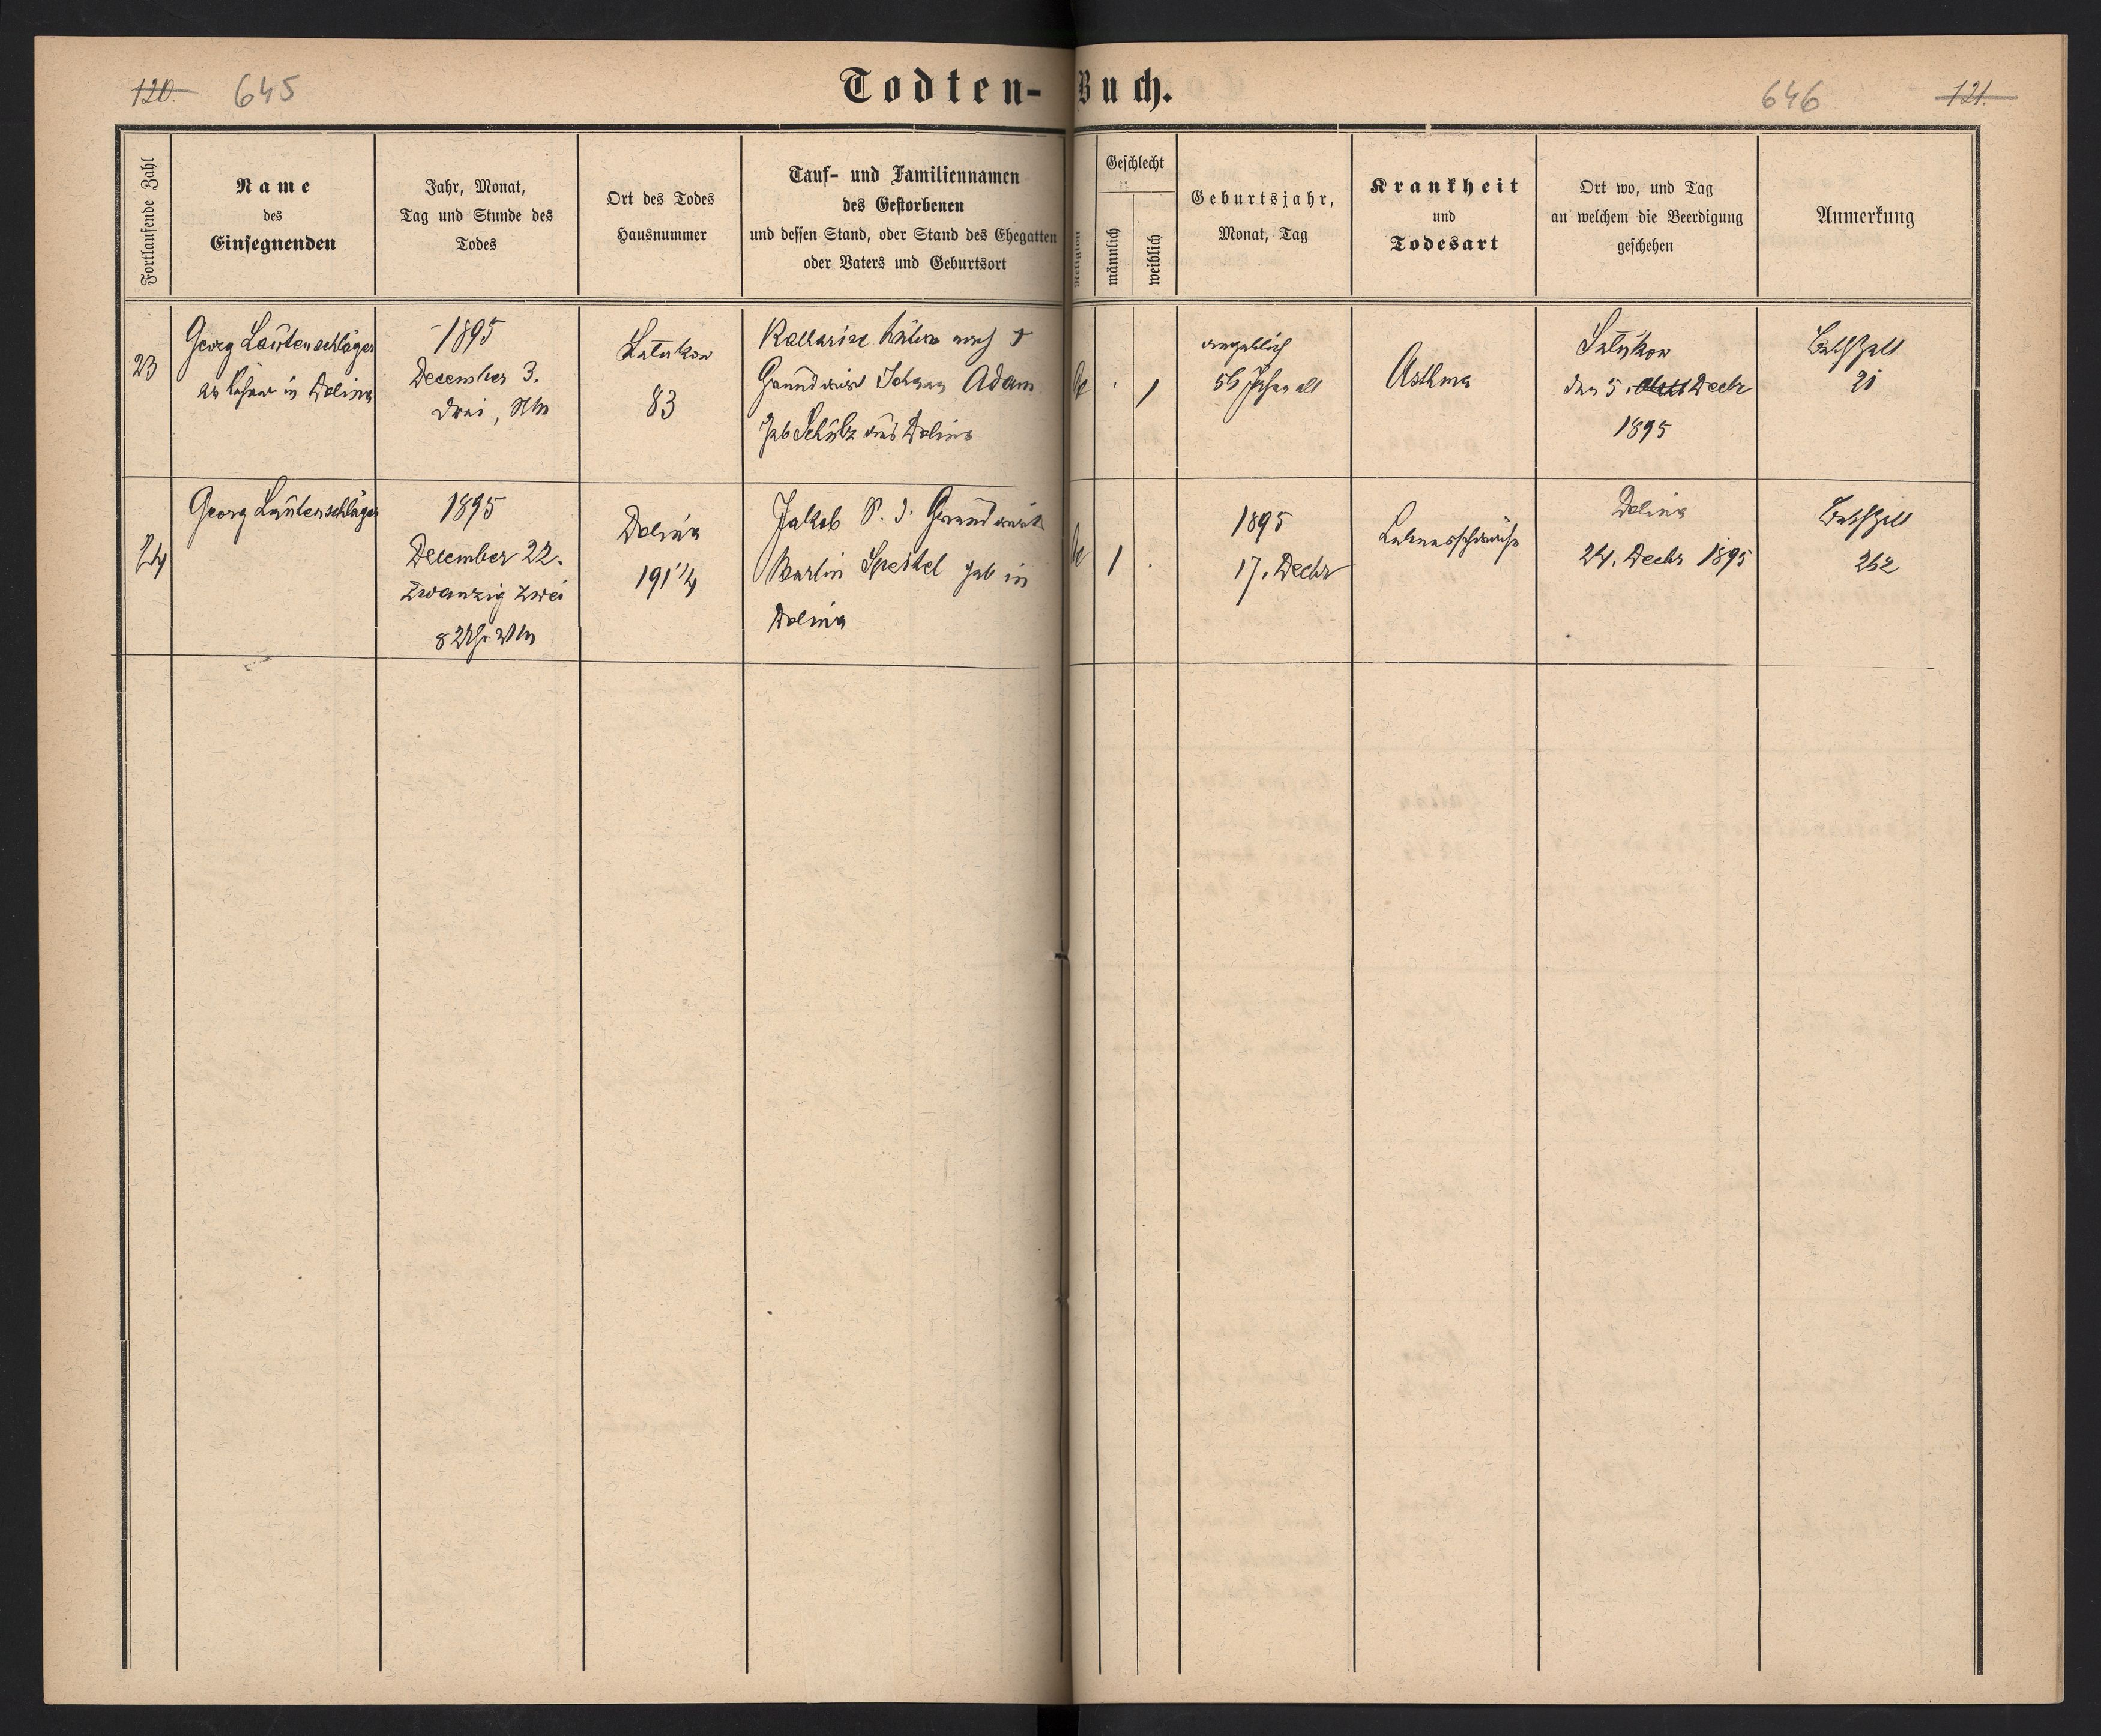 120.
645
Todten-Buch.
646
121.
Fortlaufende Zahl
Name
des
Einsegnenden
Jahr, Monat,
Tag und Stunde des
Todes
Ort des Todes
Hausnummer
Tauf- und Familiennamen
des Gestorbenen
und dessen Stand, oder Stand des Ehegatten
oder Vaters und Geburtsort
Religion
Geschlecht
männlich
weiblich
Geburtsjahr,
Monat, Tag
Krankheit
und
Todesart
Ort wo, und Tag
an welchem die Beerdigung
geschehen
Anmerkung
23
Georg Lautenschläger
in Dolina
1895
December 3.
drei,
83
Katharina nach †
Grundwirt Johann Adam
geb Schulz aus Dolina
angeblich
56 Jahre alt
Asthma
den 5. Decbr
1895
21
24
Georg Lautenschläger
1895
December 22.
zwanzig zwei
8 Uhr
Dolina
191 1/4
Jakob S. d. Grundwirt
Martin geb in
Dolina
1
1895
17. Decbr
Lebensschwäche
Dolina
24. Decbr 1895
262